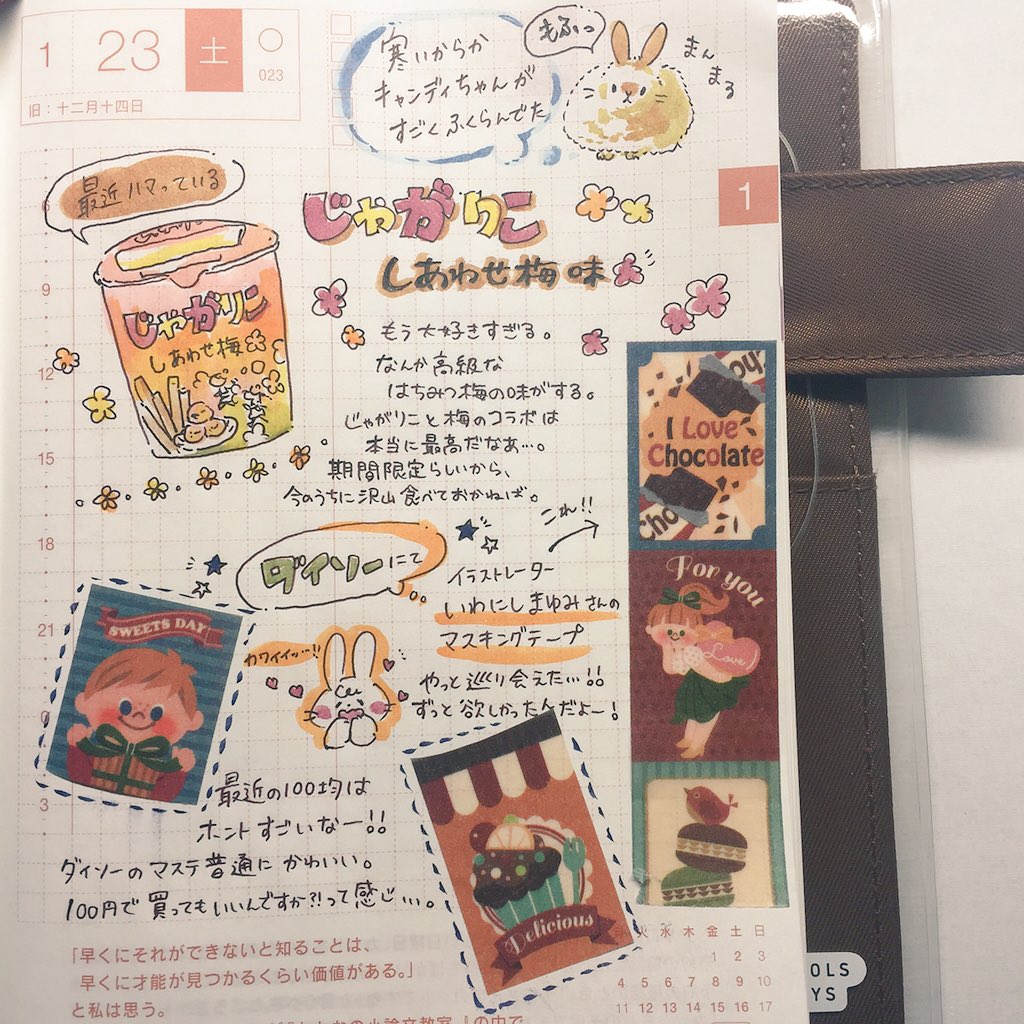 1 23 土 ○
023
旧：十二月十四日
寒いからか
キャンディちゃんが
すごくふくらんでた
もふっ
まんまる
1
最近ハマっている
じゃがりこ
しあわせ梅味
じゃがりこ
しあわせ梅
もう大好きすぎる。
なんか高級な
はちみつ梅の味がする。
じゃがりこと梅のコラボは
本当に最高だなあ…。
期間限定らしいから、
今のうちに沢山食べておかねば。
6
9
12
15
18
21
0
3
I Love
Chocolate
ダイソーにて
これ!!
イラストレーター
いわにしまゆみさんの
マスキングテープ
やっと巡り会えた…!!
ずっと欲しかったんだよー!
カワイイッ…!!
SWEETS DAY
For you
Love
最近の100均は
ホントすごいなー!!
ダイソーのマステ普通にかわいい。
100円で買ってもいいんですか?!って感じ…。
Delicious
「早くにそれができないと知ることは、
早くに才能が見つかるくらい価値がある。」
と私は思う。
火 水 木 金 土 日
1 2 3
4 5 6 7 8 9 10
11 12 13 14 15 16 17
OLS
YS